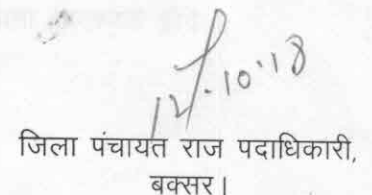 12.10.18
जिला पंचायत राज पदाधिकारी,
बक्सर।